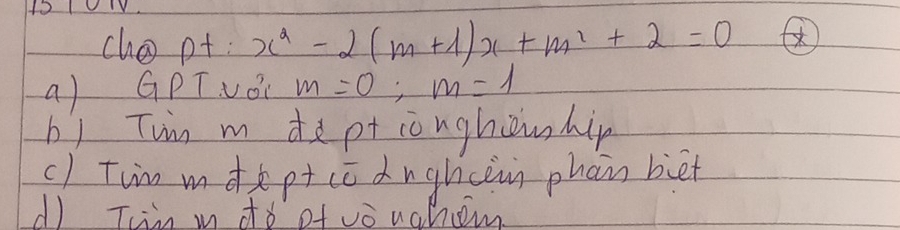 Cho pt: x² - 2(m+1)x + m² + 2 = 0 (*)
a) GPT với m = 0 ; m = 1
b) Tìm m để pt có nghiệm kép
c) Tìm m để pt có 2 nghiệm phân biệt
d) Tìm m để pt vô nghiệm